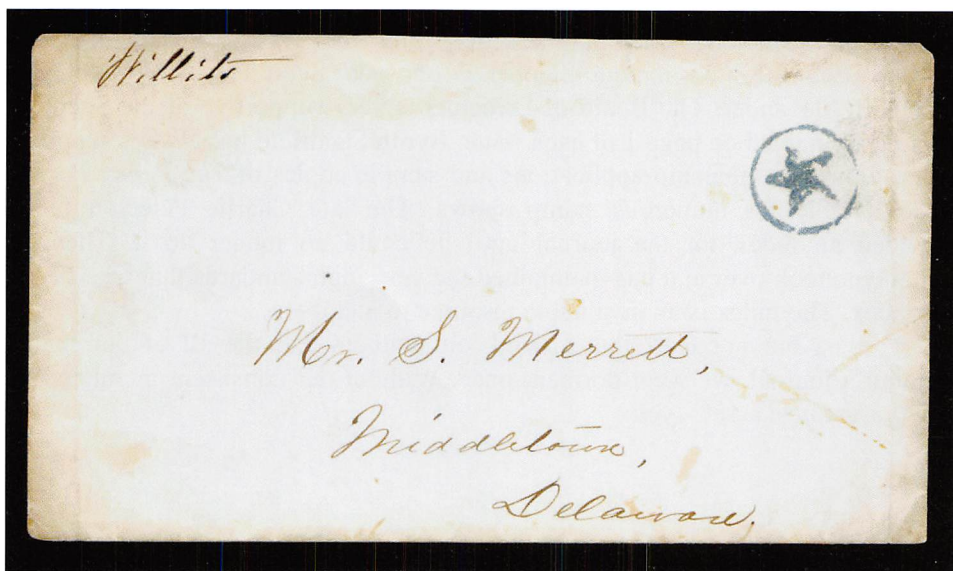 Willits
Mr. S. Merrett,
Middletown,
Delaware.